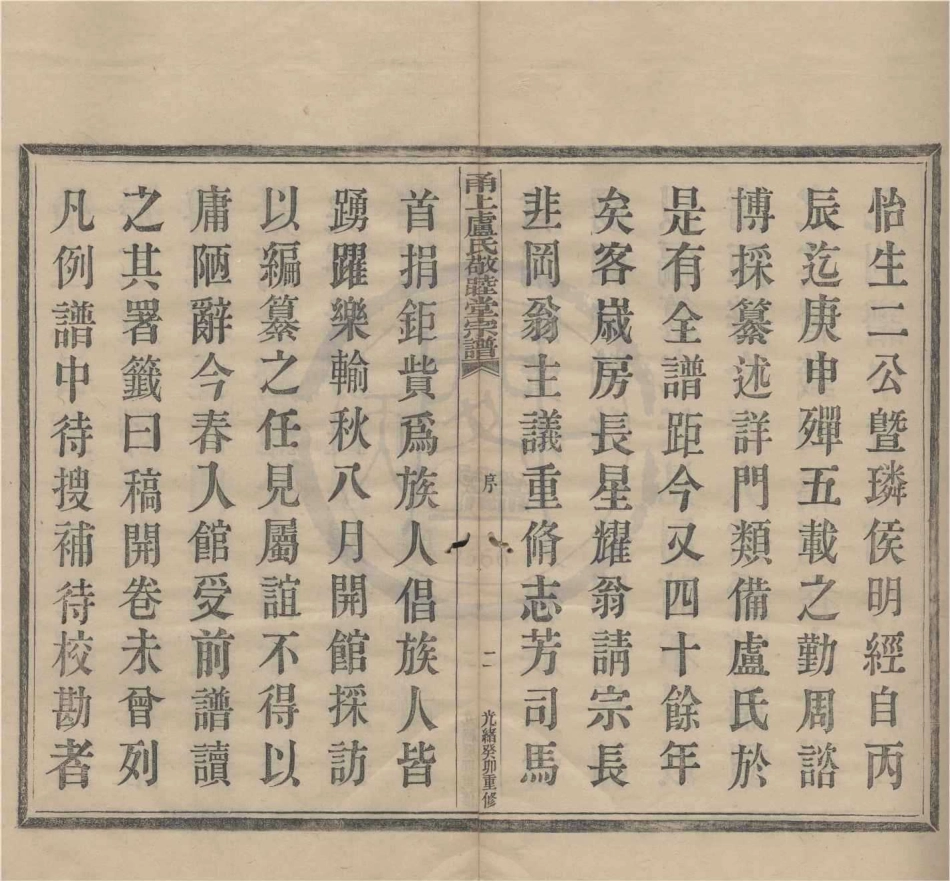 怡生二公暨璘侯明經自丙
辰迄庚申殫五載之勤周諮
博採纂述詳門類備盧氏於
是有全譜距今又四十餘年
矣客嵗房長星耀翁請宗長
韭岡翁主議重脩志芳司馬
甬上盧氏敬睦堂宗譜
序
二
光緒癸卯重修
首捐鉅貲爲族人倡族人皆
踴躍樂輸秋八月開館採訪
以編纂之任見屬誼不得以
庸陋辭今春入館受前譜讀
之其署籤曰稿開卷未曾列
凡例譜中待搜補待校勘者